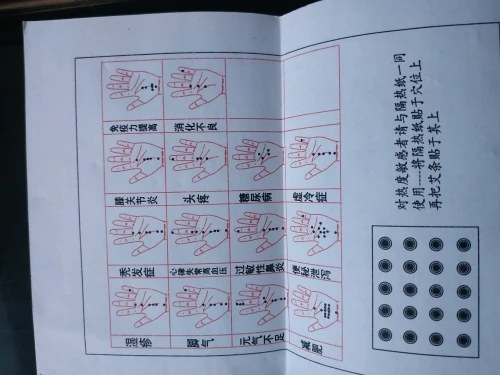 免疫力提高
消化不良
膝关节炎
头疼
糖尿病
虚冷症
秃发症
心律失常高血压
过敏性鼻炎
便秘泄泻
湿疹
脚气
元气不足
减肥
对热度敏感者请与隔热纸一同
使用----将隔热纸贴于穴位上
再把艾条贴于其上